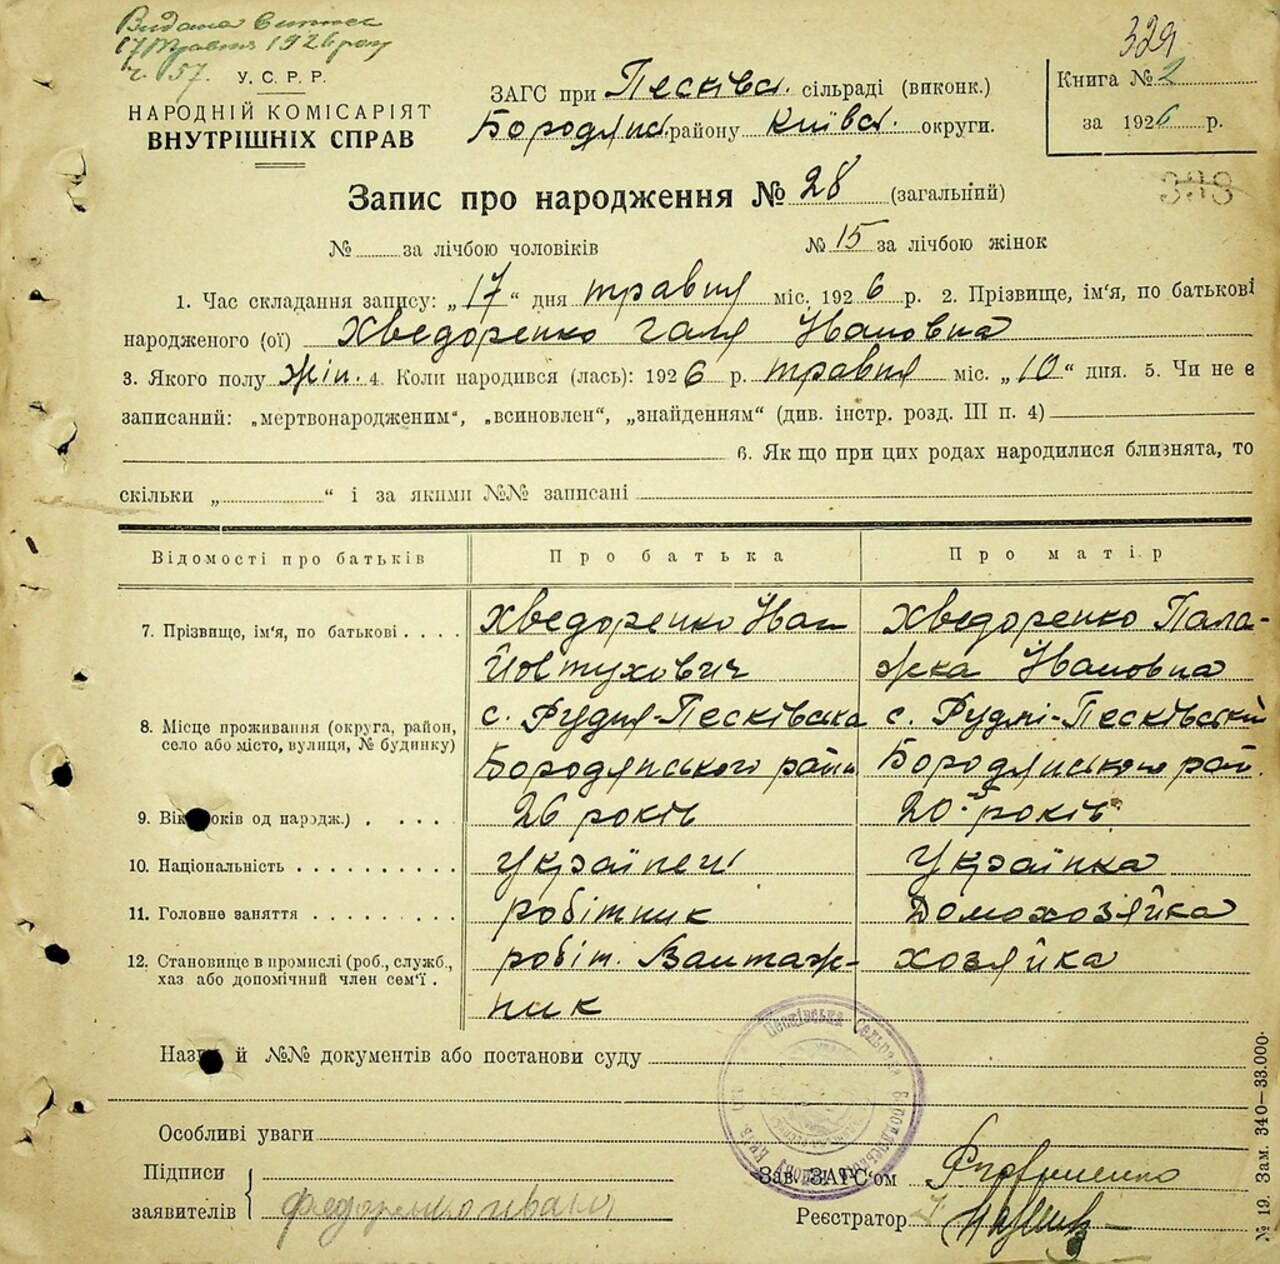 Видана виписка
17 травня 1926 року
ч. 57.
329
У. С. Р. Р.
НАРОДНІЙ КОМІСАРІЯТ
ВНУТРІШНІХ СПРАВ
ЗАГС при Песківсь. сільраді (виконк.)
Бородянсь. району Київсь. округи.
Книга № 2
за 1926 р.
328
Запис про народження № 28 (загальний)
№ за лічбою чоловіків № 15 за лічбою жінок
1. Час складання запису: „17“ дня травня міс. 1926 р. 2. Прізвище, ім'я, по батькові
народженого (ої) Хведоренко Галя Івановна
3. Якого полу жін. 4. Коли народився (лась): 1926 р. травня міс. „10“ дня. 5. Чи не є
записаний: „мертвонародженим“, „всиновлен“, „знайденням“ (див. інстр. розд. III п. 4)
6. Як що при цих родах народилися близнята, то
скільки „ “ і за якими №№ записані
Відомості про батьків Про батька Про матір
7. Прізвище, ім'я, по батькові . . . . Хведоренко Іван Хведоренко Пала-
Йовтухович жка Івановна
8. Місце проживання (округа, район, село або місто, вулиця, № будинку) с. Рудня-Песківська с. Рудні-Песківській
Бородянського району Бородянського рай.
9. Вік років од народж.) . . . . . 26 років 20 років
10. Національність . . . . . . . . . . українець українка
11. Головне заняття . . . . . . . . . робітник Домохозяйка
12. Становище в промислі (роб., служб., хаз або допомічний член сем'ї . робіт. Вантаж- хозяйка
ник
Назви й №№ документів або постанови суду
Особливі уваги
Підписи
заявителів Федоренко иван
Зав. ЗАГС'ом
Реєстратор
№ 19. Зам. 340—33.000.